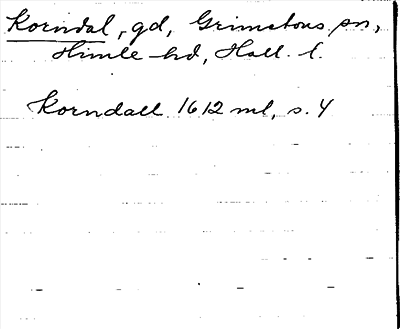 Korndal, gd, Grimetons sn,
Himle hd, Hall. l.
Korndall 1612 ml, s. 4